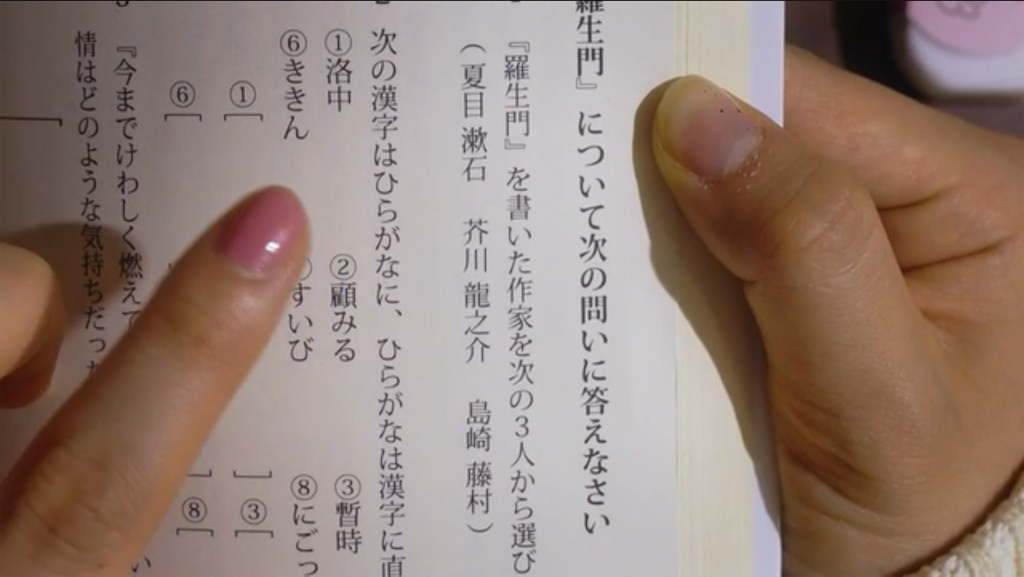 羅生門』について次の問いに答えなさい
『羅生門』を書いた作家を次の3人から選び
(夏目 漱石 芥川 龍之介 島崎 藤村)
次の漢字はひらがなに、ひらがなは漢字に直
①洛中 ②顧みる ③暫時
⑥ききん すいび ⑧にごっ
① ③
⑥ ⑧
『今までけわしく燃えて
情はどのような気持ちだった